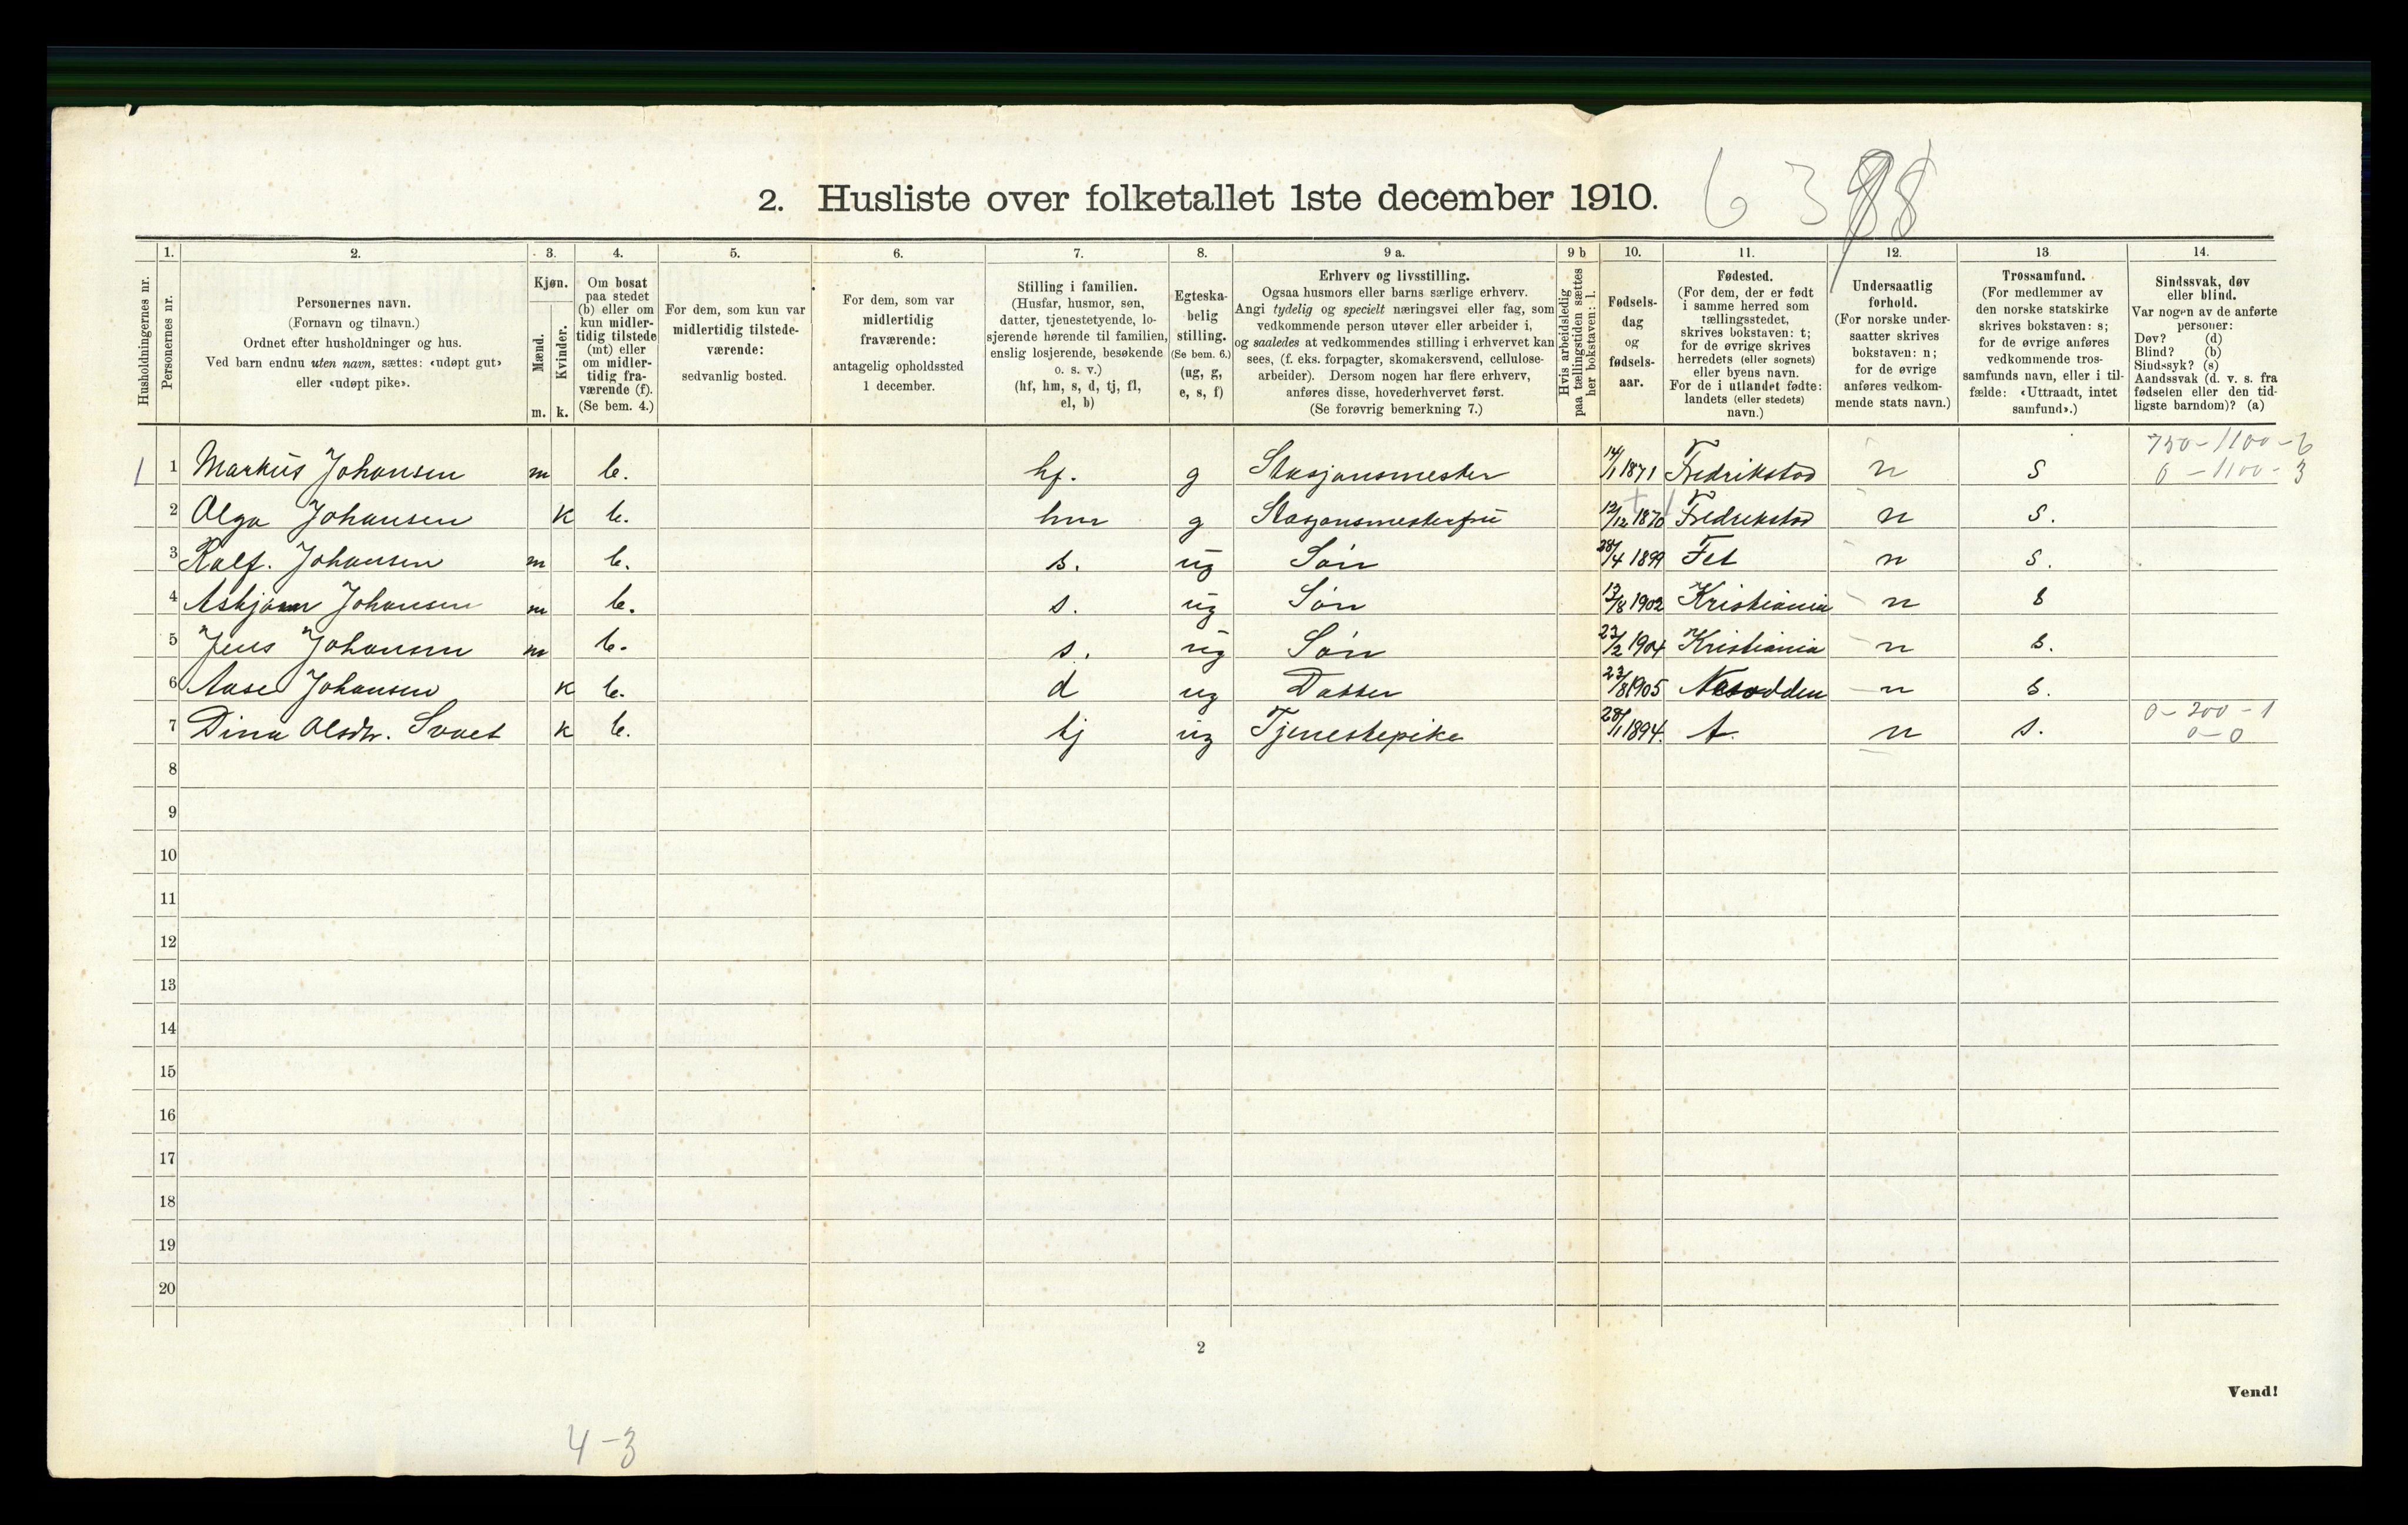 6388
2. Husliste over folketallet 1ste december 1910.
Husholdningernes nr.
1. Personernes nr.
2. Personernes navn.
(Fornavn og tilnavn.)
Ordnet efter husholdninger og hus.
Ved barn endnu uten navn, sættes: «udøpt gut»
eller «udøpt pike».
3. Kjøn.
Mænd. m.
Kvinder. k.
4. Om bosat
paa stedet
(b) eller om
kun midler-
tidig tilstede
(mt) eller
om midler-
tidig fra-
værende (f).
(Se bem. 4.)
5. For dem, som kun var
midlertidig tilstede-
værende:
sedvanlig bosted.
6. For dem, som var
midlertidig
fraværende:
antagelig opholdssted
1 december.
7. Stilling i familien.
(Husfar, husmor, søn,
datter, tjenestetyende, lo-
sjerende hørende til familien,
enslig losjerende, besøkende
o. s. v.)
(hf, hm, s, d, tj, fl,
el, b)
8. Egteska-
belig
stilling.
(Se bem. 6.)
(ug, g,
e, s, f)
9 a. Erhverv og livsstilling.
Ogsaa husmors eller barns særlige erhverv.
Angi tydelig og specielt næringsvei eller fag, som
vedkommende person utøver eller arbeider i,
og saaledes at vedkommendes stilling i erhvervet kan
sees, (f. eks. forpagter, skomakersvend, cellulose-
arbeider). Dersom nogen har flere erhverv,
anføres disse, hovederhvervet først.
(Se forøvrig bemerkning 7.)
9 b Hvis arbeidsledig
paa tællingstiden sættes
her bokstaven: l.
10. Fødsels-
dag
og
fødsels-
aar.
11. Fødested.
(For dem, der er født
i samme herred som
tællingsstedet,
skrives bokstaven: t;
for de øvrige skrives
herredets (eller sognets)
eller byens navn.
For de i utlandet fødte:
landets (eller stedets)
navn.)
12. Undersaatlig
forhold.
(For norske under-
saatter skrives
bokstaven: n;
for de øvrige
anføres vedkom-
mende stats navn.)
13. Trossamfund.
(For medlemmer av
den norske statskirke
skrives bokstaven: s;
for de øvrige anføres
vedkommende tros-
samfunds navn, eller i til-
fælde: «Uttraadt, intet
samfund».)
14. Sindssvak, døv
eller blind.
Var nogen av de anførte
personer:
Døv? (d)
Blind? (b)
Sindssyk? (s)
Aandssvak (d. v. s. fra
fødselen eller den tid-
ligste barndom)? (a)
750 - 1100 - 6
1 1 Markus Johansen m b. hf. g Stasjonsmester 14/1 1871 Fredrikstad n s 0 - 1100 - 3
2 Olga Johansen k b. hm g Stasjonsmesterfru 12/12 1870 Fredrikstad n s.
3 Ralf. Johansen m b. s. ug Søn 28/4 1899 Fet n s.
4 Asbjørn Johansen m b. s. ug Søn 13/8 1902 Kristiania n s
5 Jens Johansen m b. s. ug Søn 27/2 1904 Kristiania n s.
6 Aase Johansen k b. d ug Datter 23/8 1905 Nesodden n s.
0 - 200 - 1
7 Dina Olsdtr. Svaet k b. tj ug Tjenestepike 28/1 1894. t. n s. 0 - 0
8
9
10
11
12
13
14
15
16
17
18
19
20
2
Vend!
4-3